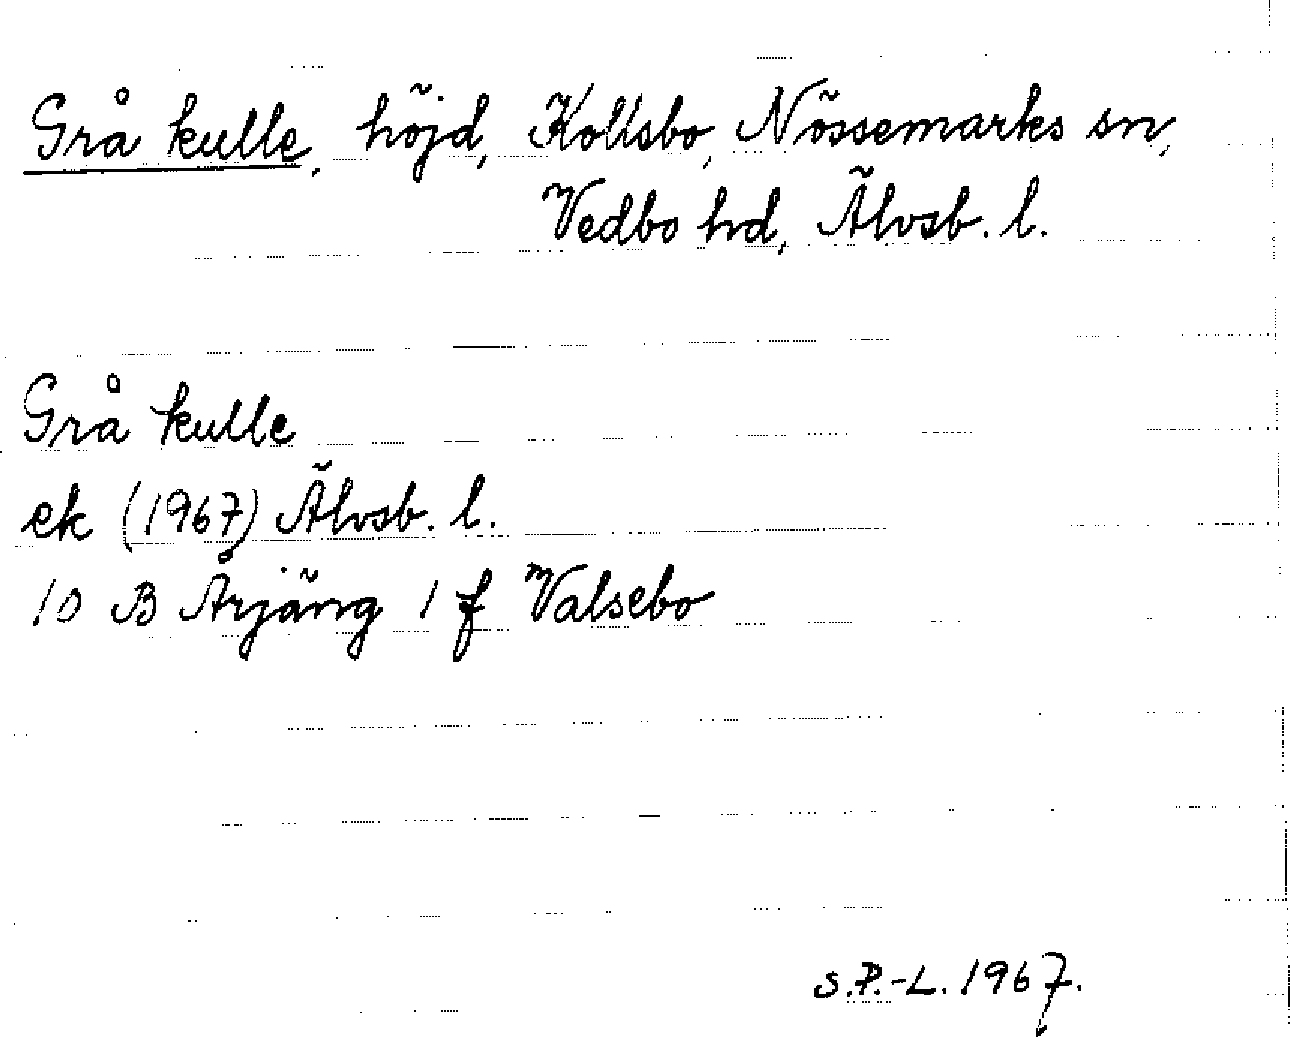 Grå kulle, höjd, Kollsbo, Nössemarks sn,
Vedbo hd, Älvsb. l.
Grå kulle
ek (1967) Älvsb. l.
10 B Årjäng 1 f Valsebo
S.P.-L. 1967.